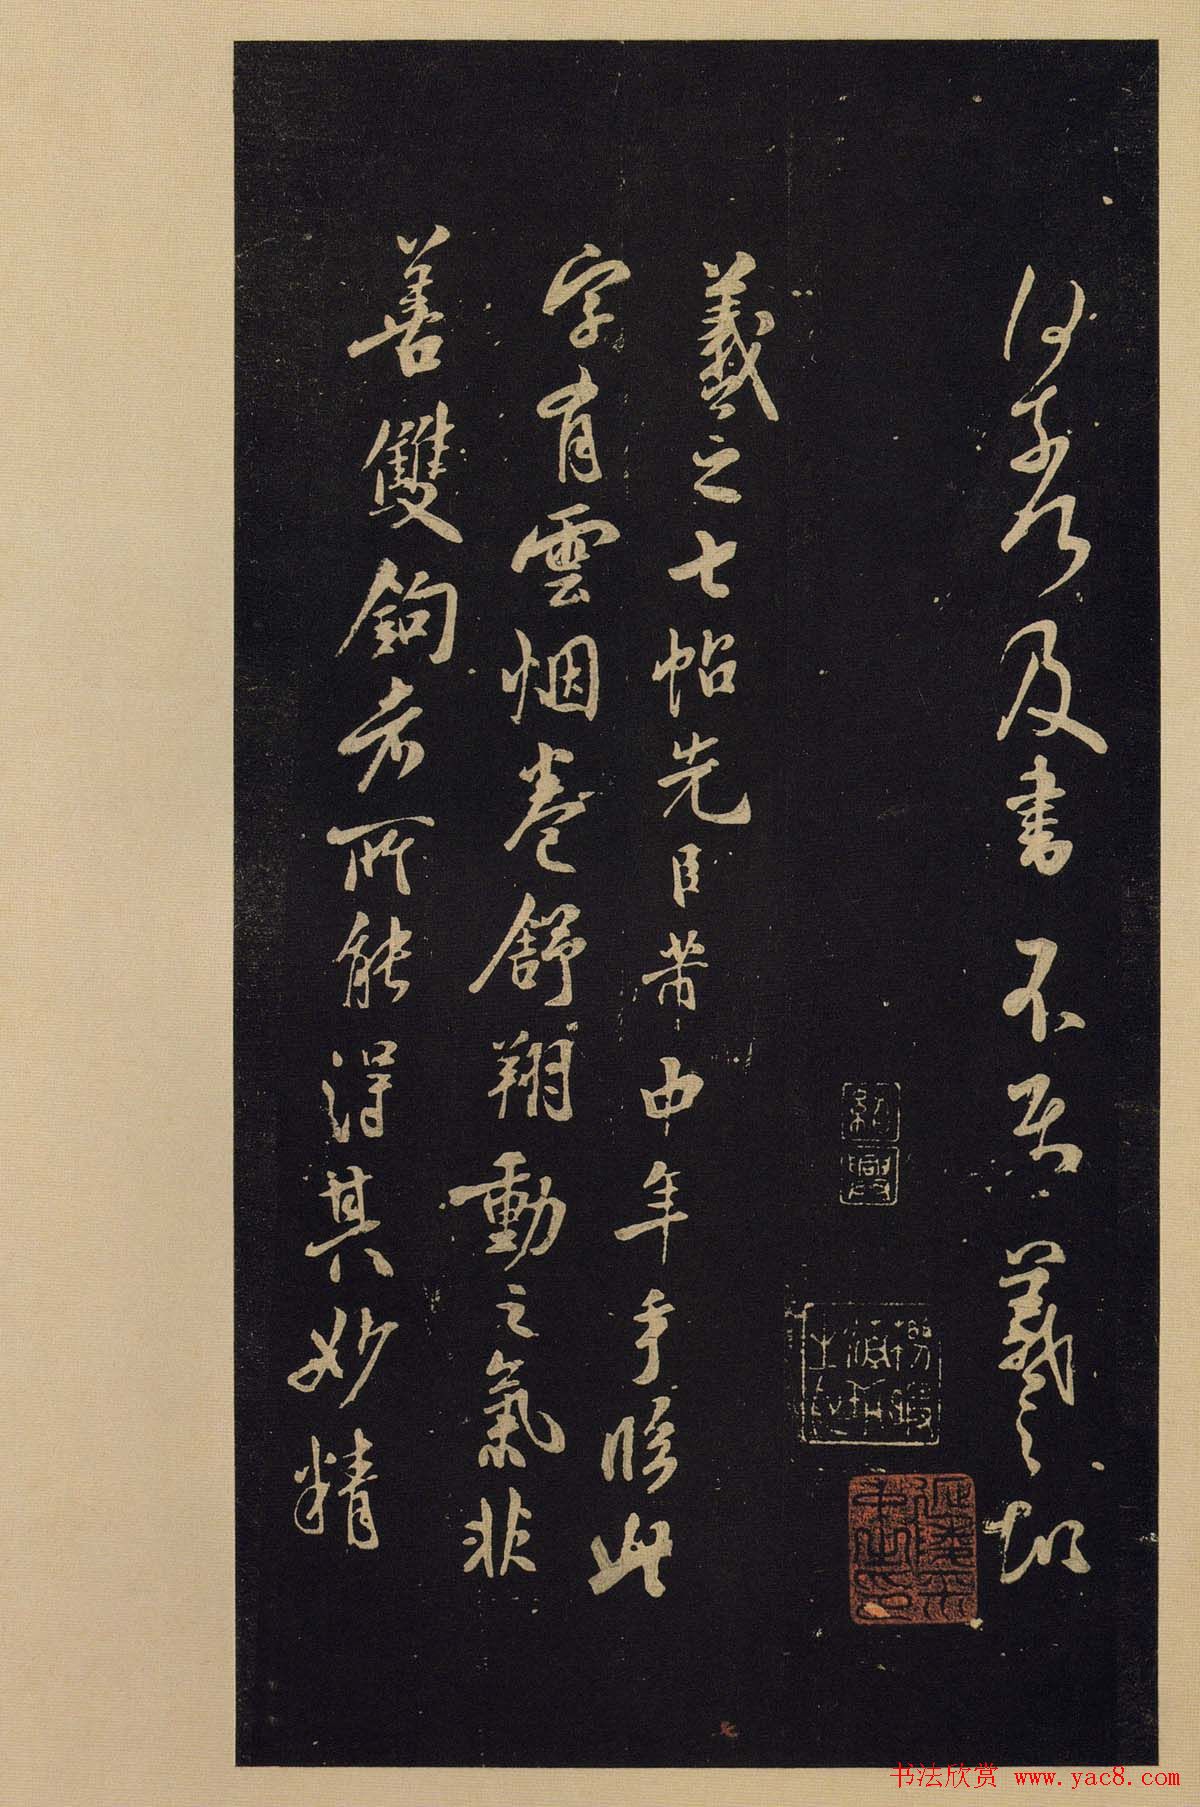 及書不
羲之
紹興
羲之七帖先臣芾中年手臨此
字有雲烟卷舒翔動之氣非
善雙鉤者所能得其妙精
书法欣赏 www.yac8.com